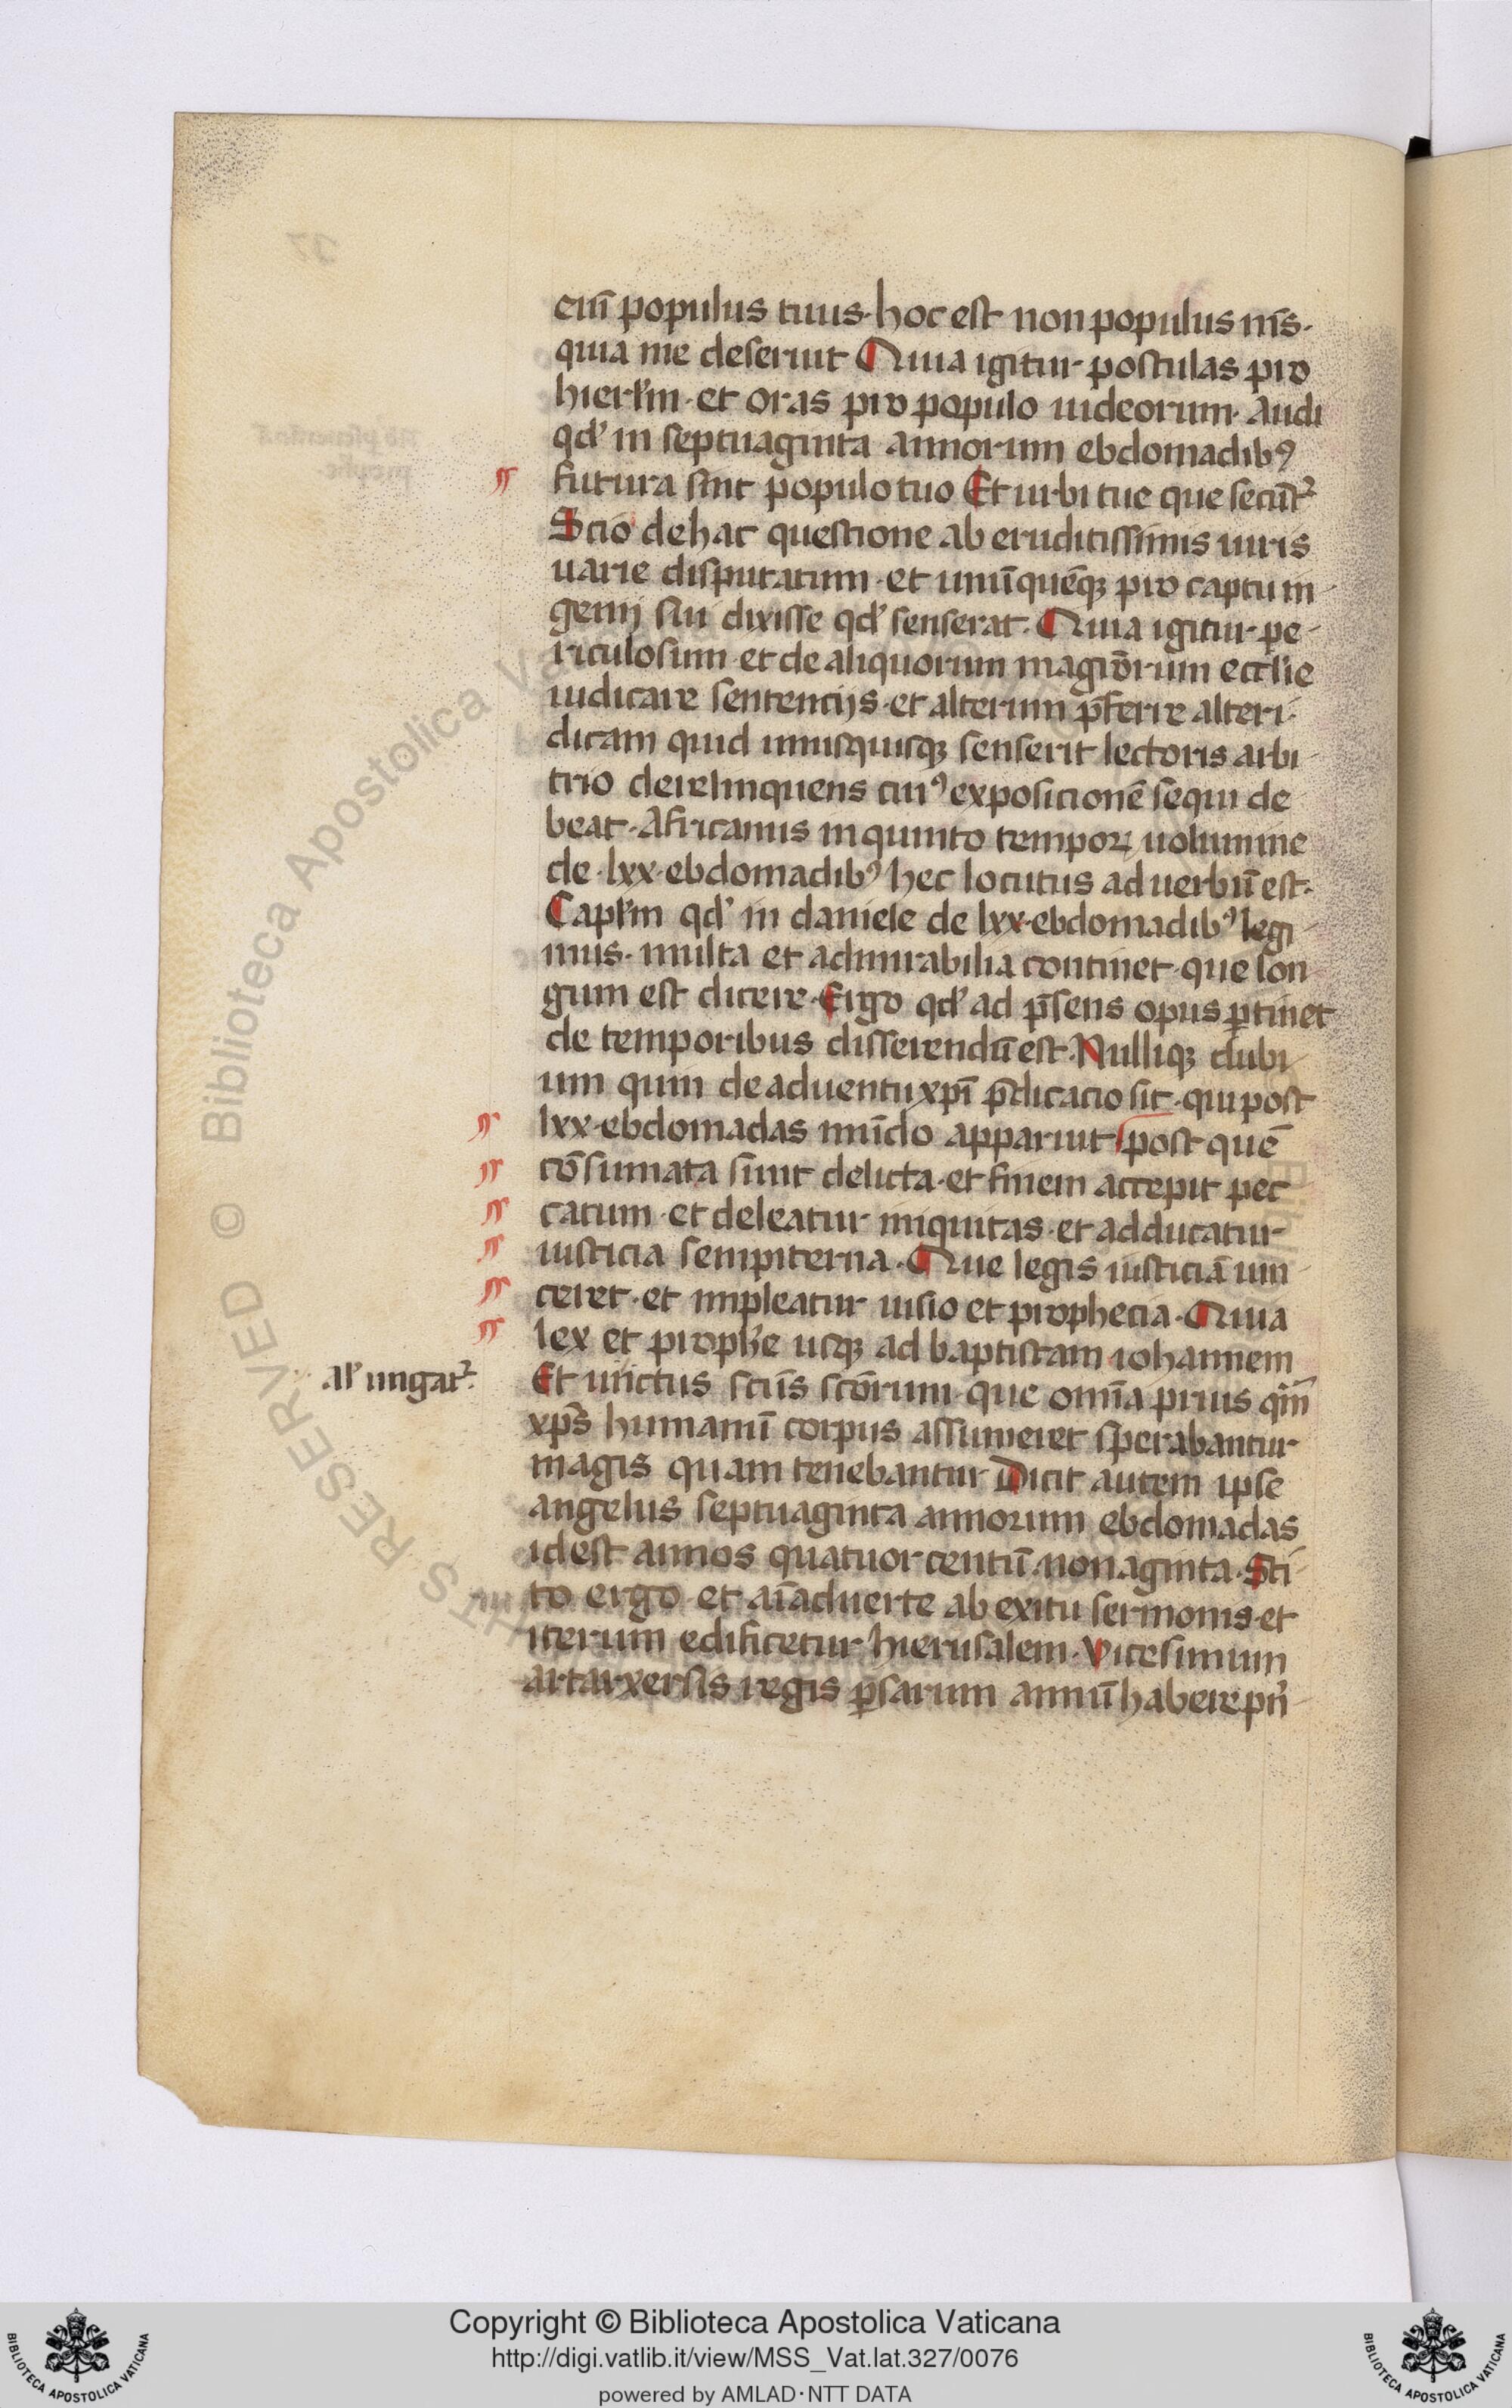 eni᷒ populus tuus· hoc est non populus nr̄s·
quia me deseruit Quia igitur postulas pro
hierl̄m· et oras pro populo iudeorum· audi
qd' in septuaginta annorum ebdomadibꝰ
futura sint populo tuo Et urbi tue que secūt᷑
Scio de hac questione ab eruditissimis uiris
uarie disputatum· et unūquēqꝫ pro captu in-
genij sui dixisse qd' senserat· Quia igitur pe-
riculosum et de aliquorum magrōrum eccl'ie
iudicare sentencijs· et alterum p̄ferre alteri·
dicam quid unusquisqꝫ senserit lectoris arbi-
trio derelinquens cuiꝰ exposicionē sequi de
beat· Africanus in quinto tempoꝝ uolumine
de· lxx· ebdomadibꝰ hec locutus ad uerbū est·
Capl'm qd' in daniele de lxx· ebdomadibꝰ legi-
mus· multa et admirabilia continet· que lon-
gum est dicere· Ergo qd' ad p̄sens opus ꝑtinet
de temporibus disserendū est· Nulliqꝫ dubi-
um quin de aduentu xp̄i p̄dicacio sit· qui post
lxx· ebdomadas mūdo apparuit post quē
cōsumata sunt delicta· et finem accepit pec
catum· et deleatur iniquitas· et adducatur
iusticia sempiterna· Que legis iusticiā uin-
ceret· et impleatur uisio et prophecia· Quia
lex et proph'e usqꝫ ad baptistam iohannem
al' ungat᷑·
Et unctus sc̄us sc̄orum· que omīa prius qm̄
xp̄s humanū corpus assumeret sperabantur
magis quam tenebantur Dicit autem ipse
angelus septuaginta annorum ebdomadas
idest annos quatuor centū· nonaginta· Sci-
to ergo et aīaduerte ab exitu sermonis· et
iterum edificetur hierusalem· Vicesimum
artarxersis regis ꝑsarum annū habere pri-
Copyright © Biblioteca Apostolica Vaticana
http://digi.vatlib.it/view/MSS_Vat.lat.327/0076
powered by AMLAD·NTT DATA